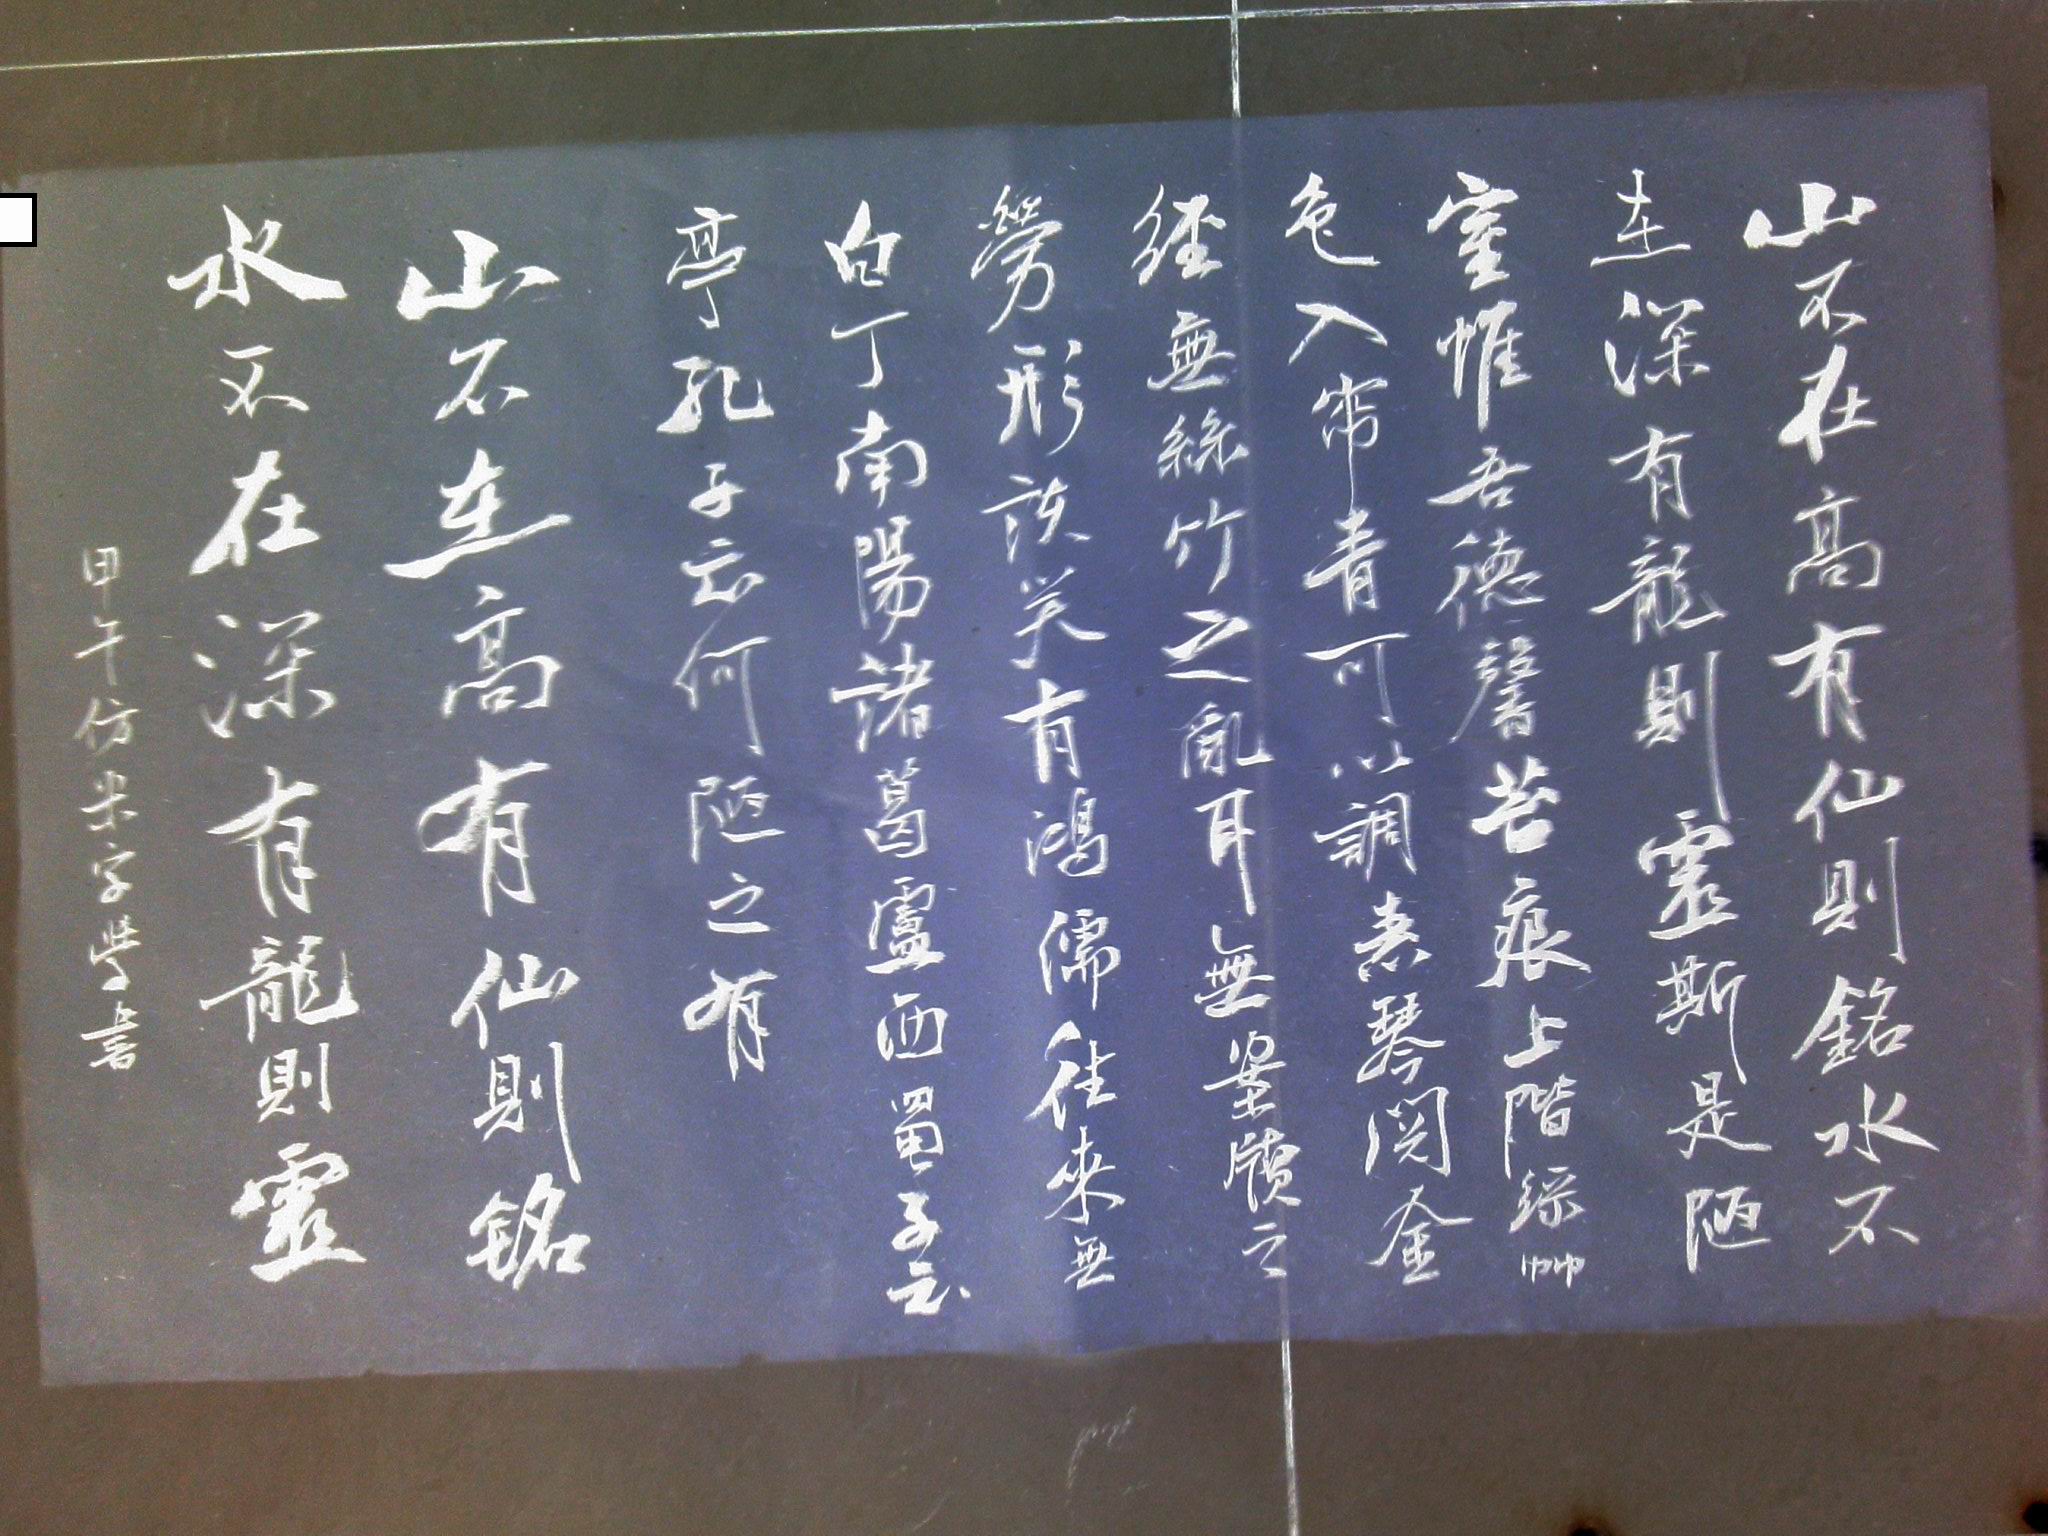 山不在高有仙則銘水不
在深有龍則靈斯是陋
室惟吾德馨苔痕上階綠艸
色入帘青可以調素琴閱金
經無絲竹之亂耳無案牘之
勞形談笑有鴻儒往來無
白丁南陽諸葛盧西蜀子云
亭孔子云何陋之有
山不在高有仙則銘
水不在深有龍則靈
甲午仿米字學書